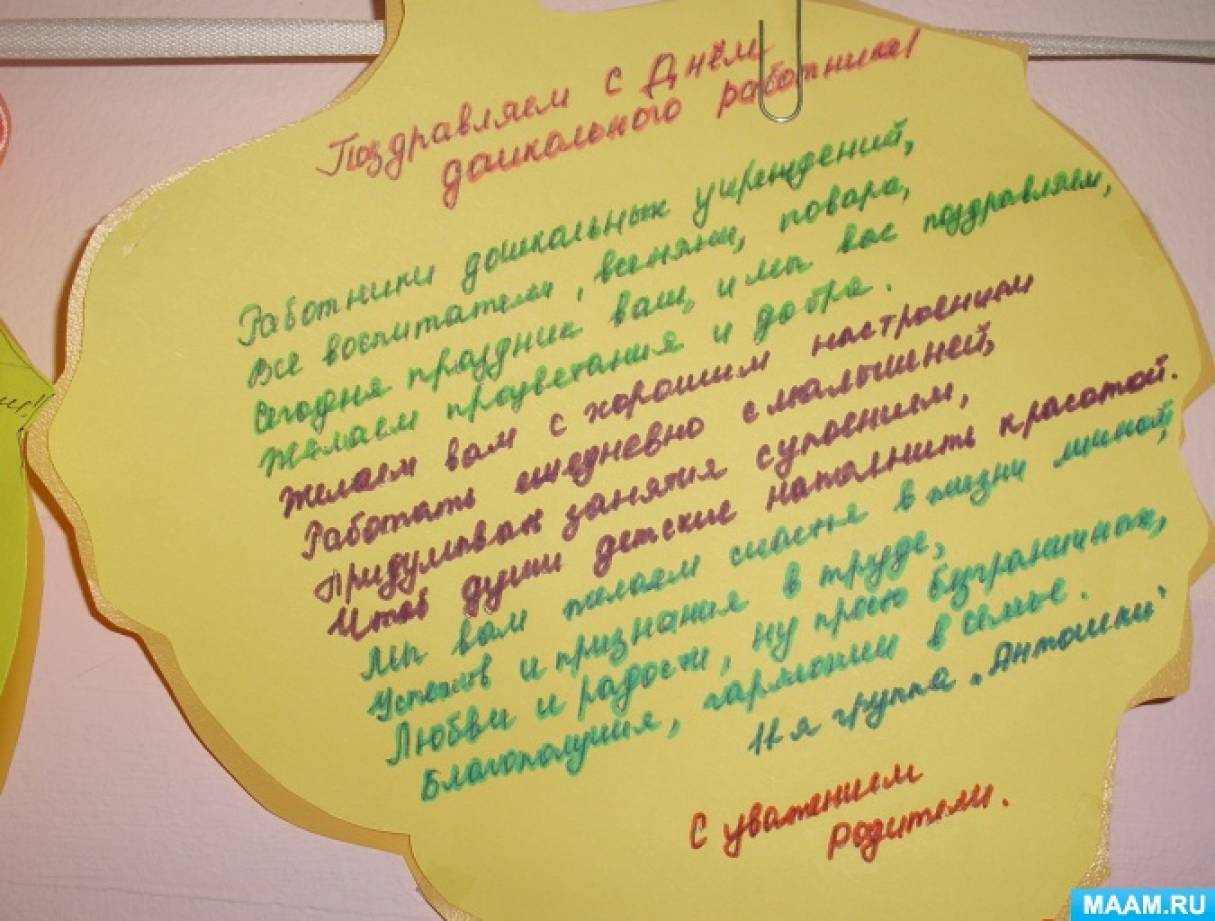 Поздравляем с Днём
дошкольного работника!
Работники дошкольных учреждений,
Все воспитатели, все няни, повара,
Сегодня праздник ваш, и мы вас поздравляем,
Желаем процветания и добра.
Желаем вам с хорошим настроением
Работать ежедневно с малышнёй,
Придумывать занятия с упоением,
Чтоб души детские наполнить красотой.
Мы вам желаем счастья в жизни личной,
Успехов и признания в труде,
Любви и радости, ну просто безграничных,
Благополучия, гармонии в семье.
11-я группа „Антошки"
С уважением
Родители.
MAAM.RU